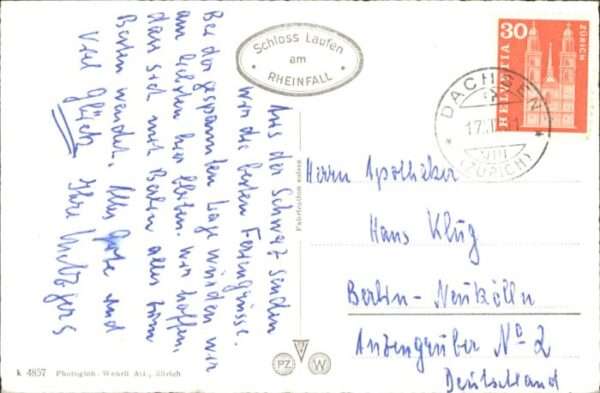 Aus der Schweiz senden
wir die besten Feriengrüsse.
Bei der gespannten Lage würden wir
am liebsten hier bleiben. Wir hoffen,
dass sich mit Berlin alles zum
Besten wendet. Alles Gute und
Viel Glück Ihre
Schloss Laufen
am
RHEINFALL
HELVETIA
30
ZÜRICH
DACHSEN
17.
(ZÜRICH)
Herrn Apotheker
Hans Klug
Berlin-Neukölln
Anzengruber No 2
Deutschland
PZ
W
k 4857 Photoglob-Wehrli AG., Zürich